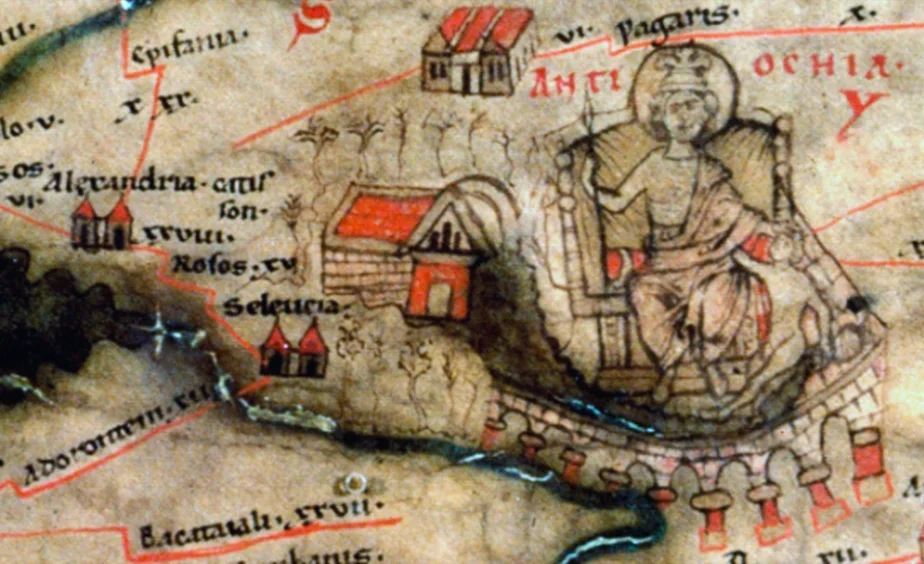 Epifania.
S
VI.
Pagaris.
X.
ANTI
OCHIA.
Y
X XV.
Alexandria. catis
son.
VI.
XXVIII.
Rosos. XV
Seleucia.
Adorontem. XII
Bacataiali. XXVII.
XII.